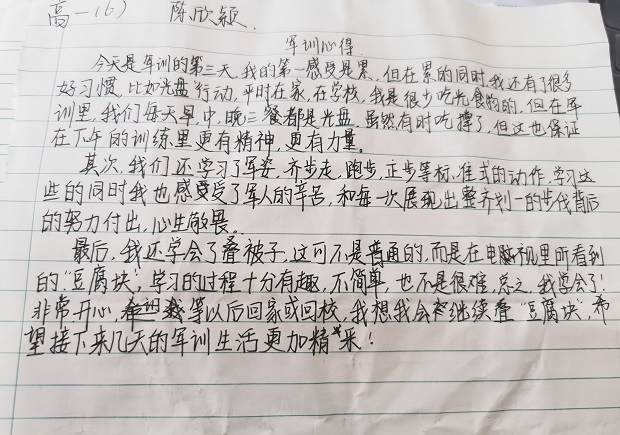 高一(6) 陈欣颖
军训心得
今天是军训的第三天,我的第一感受是累,但在累的同时,我还有了很多
好习惯,比如光盘行动,平时在家,在学校,我是很少吃光食物的,但在军
训里,我们每天早,中,晚三餐都是光盘,虽然有时吃撑了,但这也保证
在下午的训练里更有精神,更有力量。
其次,我们还学习了军姿,齐步走,跑步,正步等标准式的动作,学习这
些的同时我也感受受了军人的辛苦,和每一次展现出整齐划一的步伐背后
的努力付出,心生敬畏。
最后,我还学会了叠被子,这可不是普通的,而是在电视里所看到
的“豆腐块”,学习的过程十分有趣,不简单,也不是很难,总之,我学会了!
非常开心,等以后回家或回校,我想我会继续叠“豆腐块”,希
望接下来几天的军训生活更加精采!